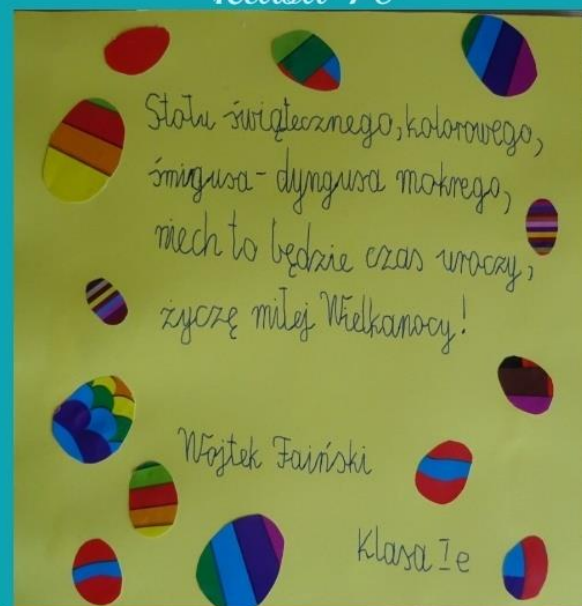 Stołu świątecznego, kolorowego,
śmigusa-dyngusa mokrego,
niech to będzie czas uroczy,
życzę miłej Wielkanocy!
Wojtek Faiński
Klasa Ie